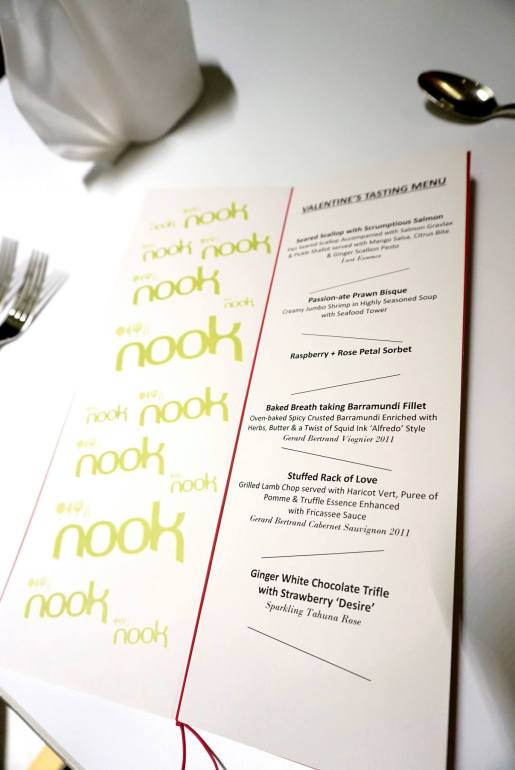 nook
nook
nook
nook
nook
nook
nook
nook
nook
nook
nook
nook
nook
nook
VALENTINE'S TASTING MENU
Seared Scallop with Scrumptious Salmon
Pan Seared Scallop Accompanied with Salmon Gravlax
& Pickle Shallot served with Mango Salsa, Citrus Bite
& Ginger Scallion Pesto
Passion-ate Prawn Bisque
Creamy Jumbo Shrimp in Highly Seasoned Soup
with Seafood Tower
Raspberry + Rose Petal Sorbet
Baked Breath taking Barramundi Fillet
Oven-baked Spicy Crusted Barramundi Enriched with
Herbs, Butter & a Twist of Squid Ink 'Alfredo' Style
Gerard Bertrand Viognier 2011
Stuffed Rack of Love
Grilled Lamb Chop served with Haricot Vert, Puree of
Pomme & Truffle Essence Enhanced
with Fricassee Sauce
Gerard Bertrand Cabernet Sauvignon 2011
Ginger White Chocolate Trifle
with Strawberry 'Desire'
Sparkling Tahuna Rose